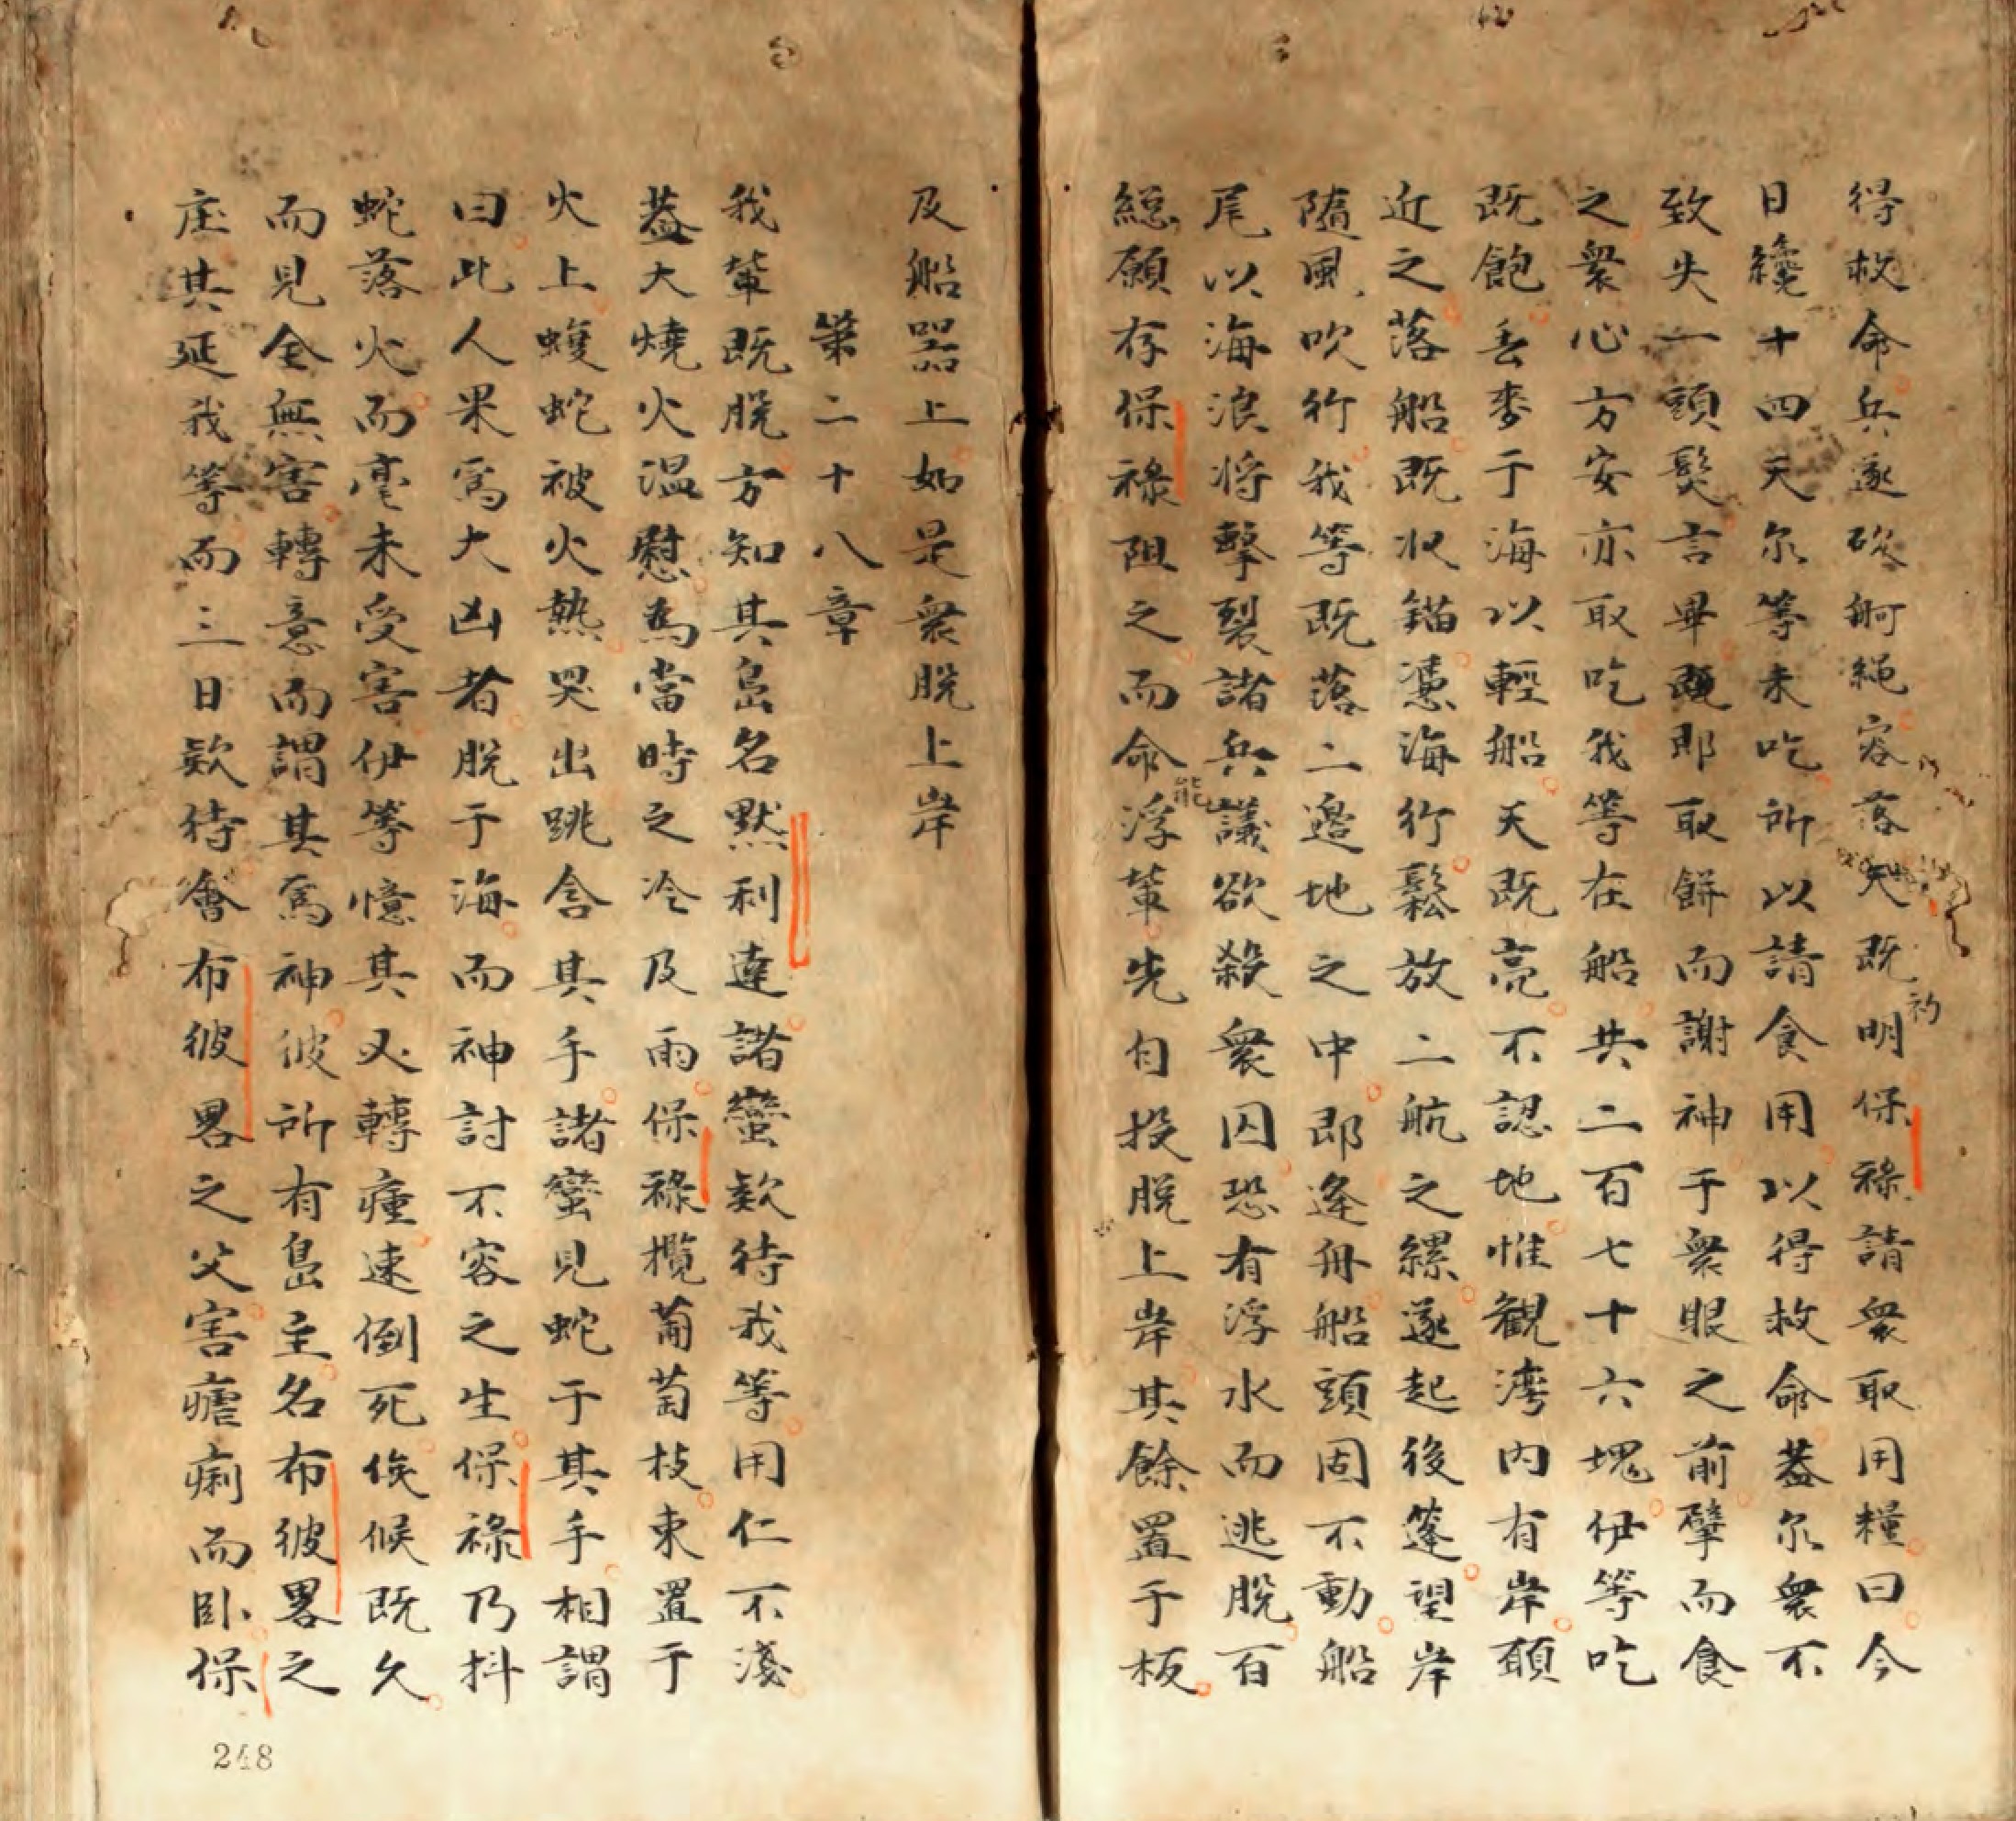 得救命兵遂砍舸繩容落天既明保祿請衆取用糧曰今
初
日纔十四天尔等未吃所以請食用以得救命葢尔衆不
致失一頭髮言畢既即取餅而謝神于衆眼之前擘而食
之衆心方安亦取吃我等在船共二百七十六塊伊等吃
既飽丢麥于海以輕船天既亮不認地惟観湾内有岸願
近之落船既收錨憑海行鬆放二航之縲遂起後篷望岸
隨風吹行我等既落二邉地之中即逄舟船頭固不動船
尾以海浪将擊裂諸兵議欲殺衆囚恐有浮水而逃脱百
緫願存保祿阻之而命浮輩先自投脱上岸其餘置于板
能
及船噐上如是衆脱上岸
第二十八章
我輩既脱方知其島名默利達諸蠻欵待我等用仁不淺
葢大燒火温慰為當時之冷及雨保祿攬葡萄枝束置于
火上蝮蛇被火熱哭出跳含其手諸蠻見蛇于其手相謂
曰此人果爲大凶者脱于海而神討不容之生保祿乃抖
蛇落火而毫未受害伊等憶其必轉瘇速倒死俟候既久
而見全無害轉意而謂其爲神彼所有島主名布彼畧之
庄其延我等而三日欵待會布彼畧之父害瘧痢而卧保
248